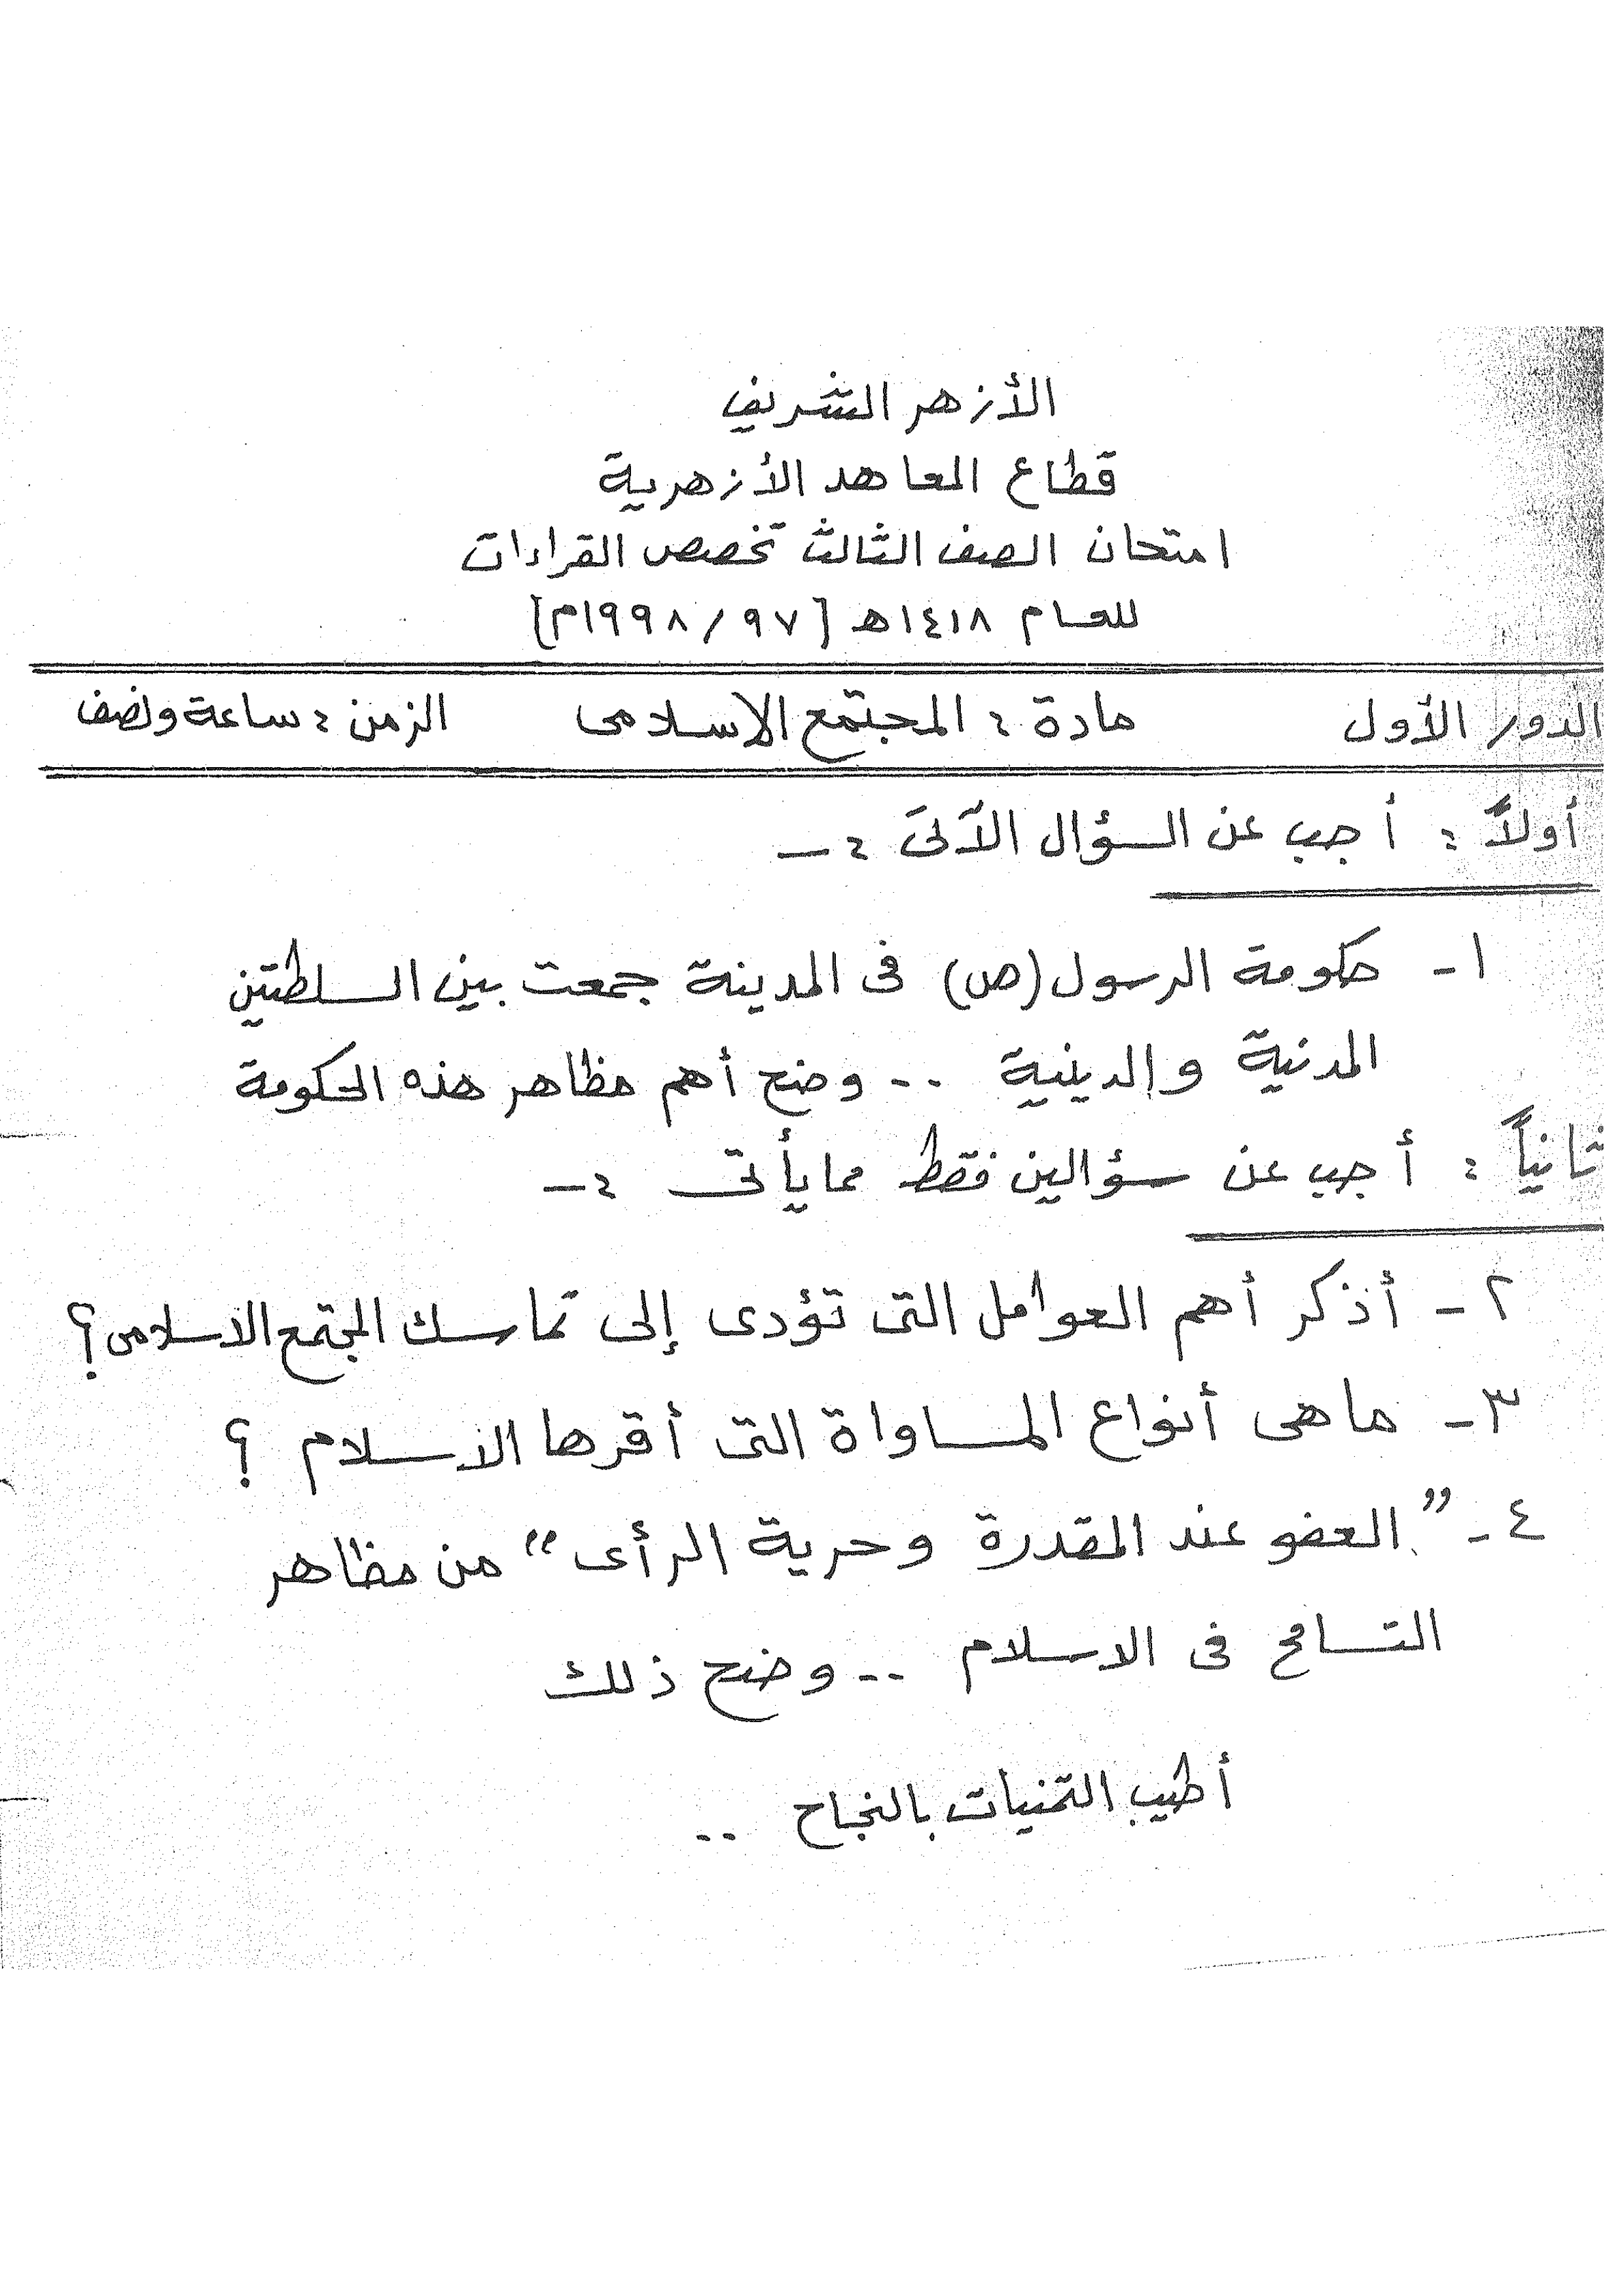 الأزهر الشريف
قطاع المعاهد الأزهرية
امتحان الصف الثالث تخصص القراءات
للعام ١٤١٨ه [٩٧ / ١٩٩٨م]
الدور الأول مادة : المجتمع الإسلامى الزمن : ساعة ونصف
أولاً : أجب عن السؤال الآتى :-
١- حكومة الرسول (ص) فى المدينة جمعت بين السلطتين
المدنية والدينية .. وضح أهم مظاهر هذه الحكومة
ثانياً : أجب عن سؤالين فقط مما يأتى :-
٢- أذكر أهم العوامل التى تؤدى إلى تماسك المجتمع الاسلامى ؟
٣- ماهى أنواع المساواة التى أقرها الاسلام ؟
٤- " العفو عند المقدرة وحرية الرأى " من مظاهر
التسامح فى الاسلام .. وضح ذلك
أطيب التمنيات بالنجاح ..